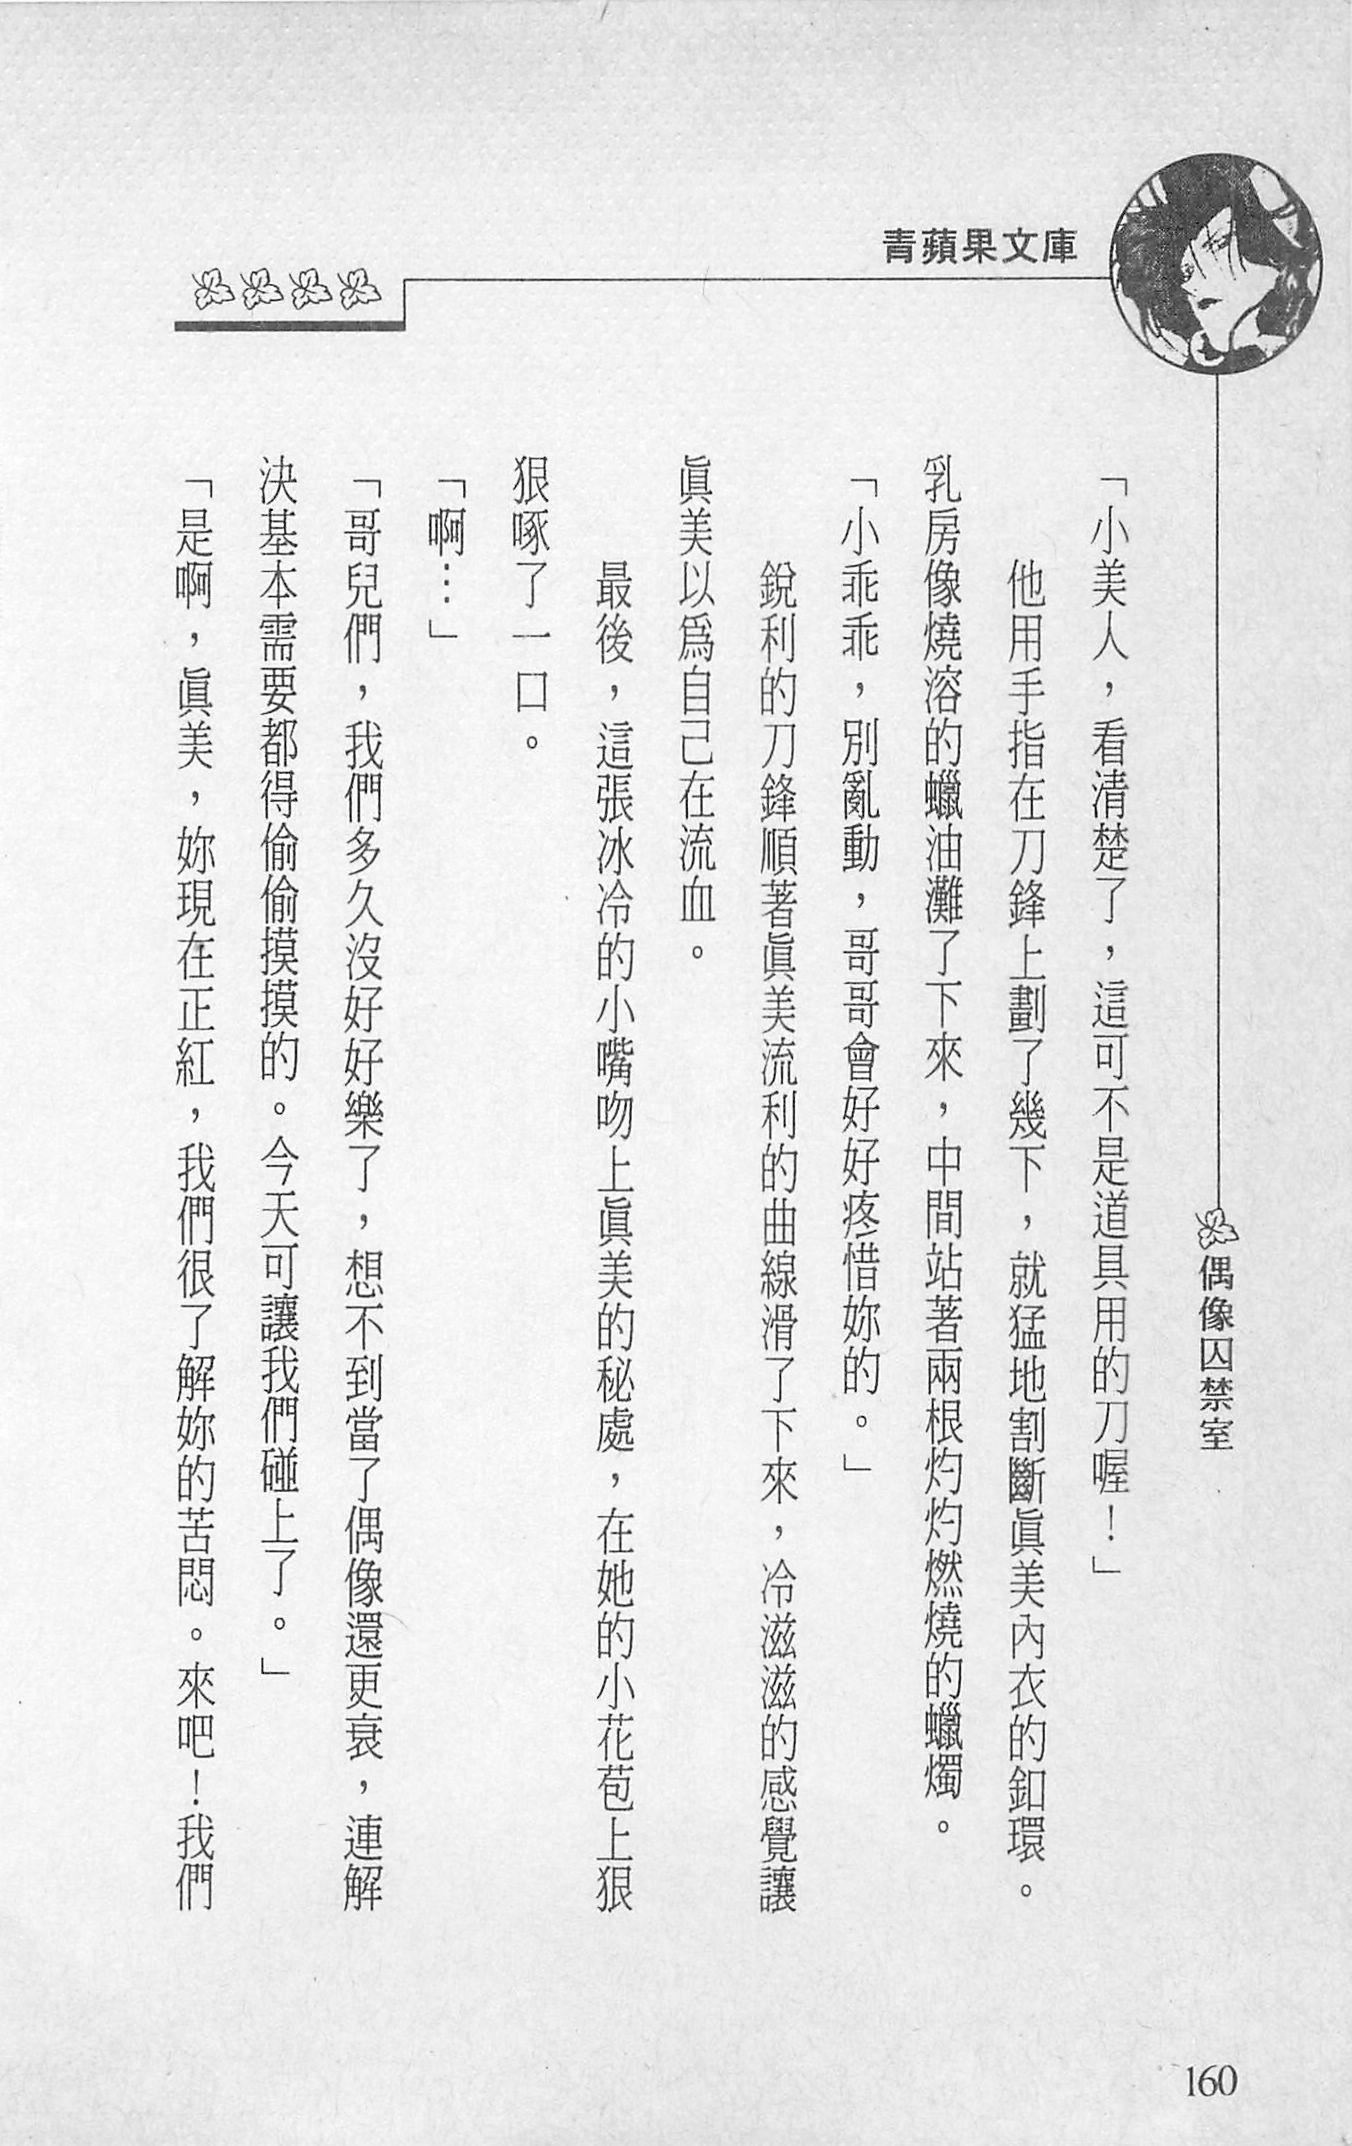 青蘋果文庫
偶像囚禁室
「小美人，看清楚了，這可不是道具用的刀喔！」
他用手指在刀鋒上劃了幾下，就猛地割斷眞美內衣的釦環。
乳房像燒溶的蠟油灘了下來，中間站著兩根灼灼燃燒的蠟燭。
「小乖乖，別亂動，哥哥會好好疼惜妳的。」
銳利的刀鋒順著眞美流利的曲線滑了下來，冷滋滋的感覺讓
眞美以爲自己在流血。
最後，這張冰冷的小嘴吻上眞美的秘處，在她的小花苞上狠
狠啄了一口。
「啊…」
「哥兒們，我們多久沒好好樂了，想不到當了偶像還更衰，連解
決基本需要都得偷偷摸摸的。今天可讓我們碰上了。」
「是啊，眞美，妳現在正紅，我們很了解妳的苦悶。來吧！我們
160